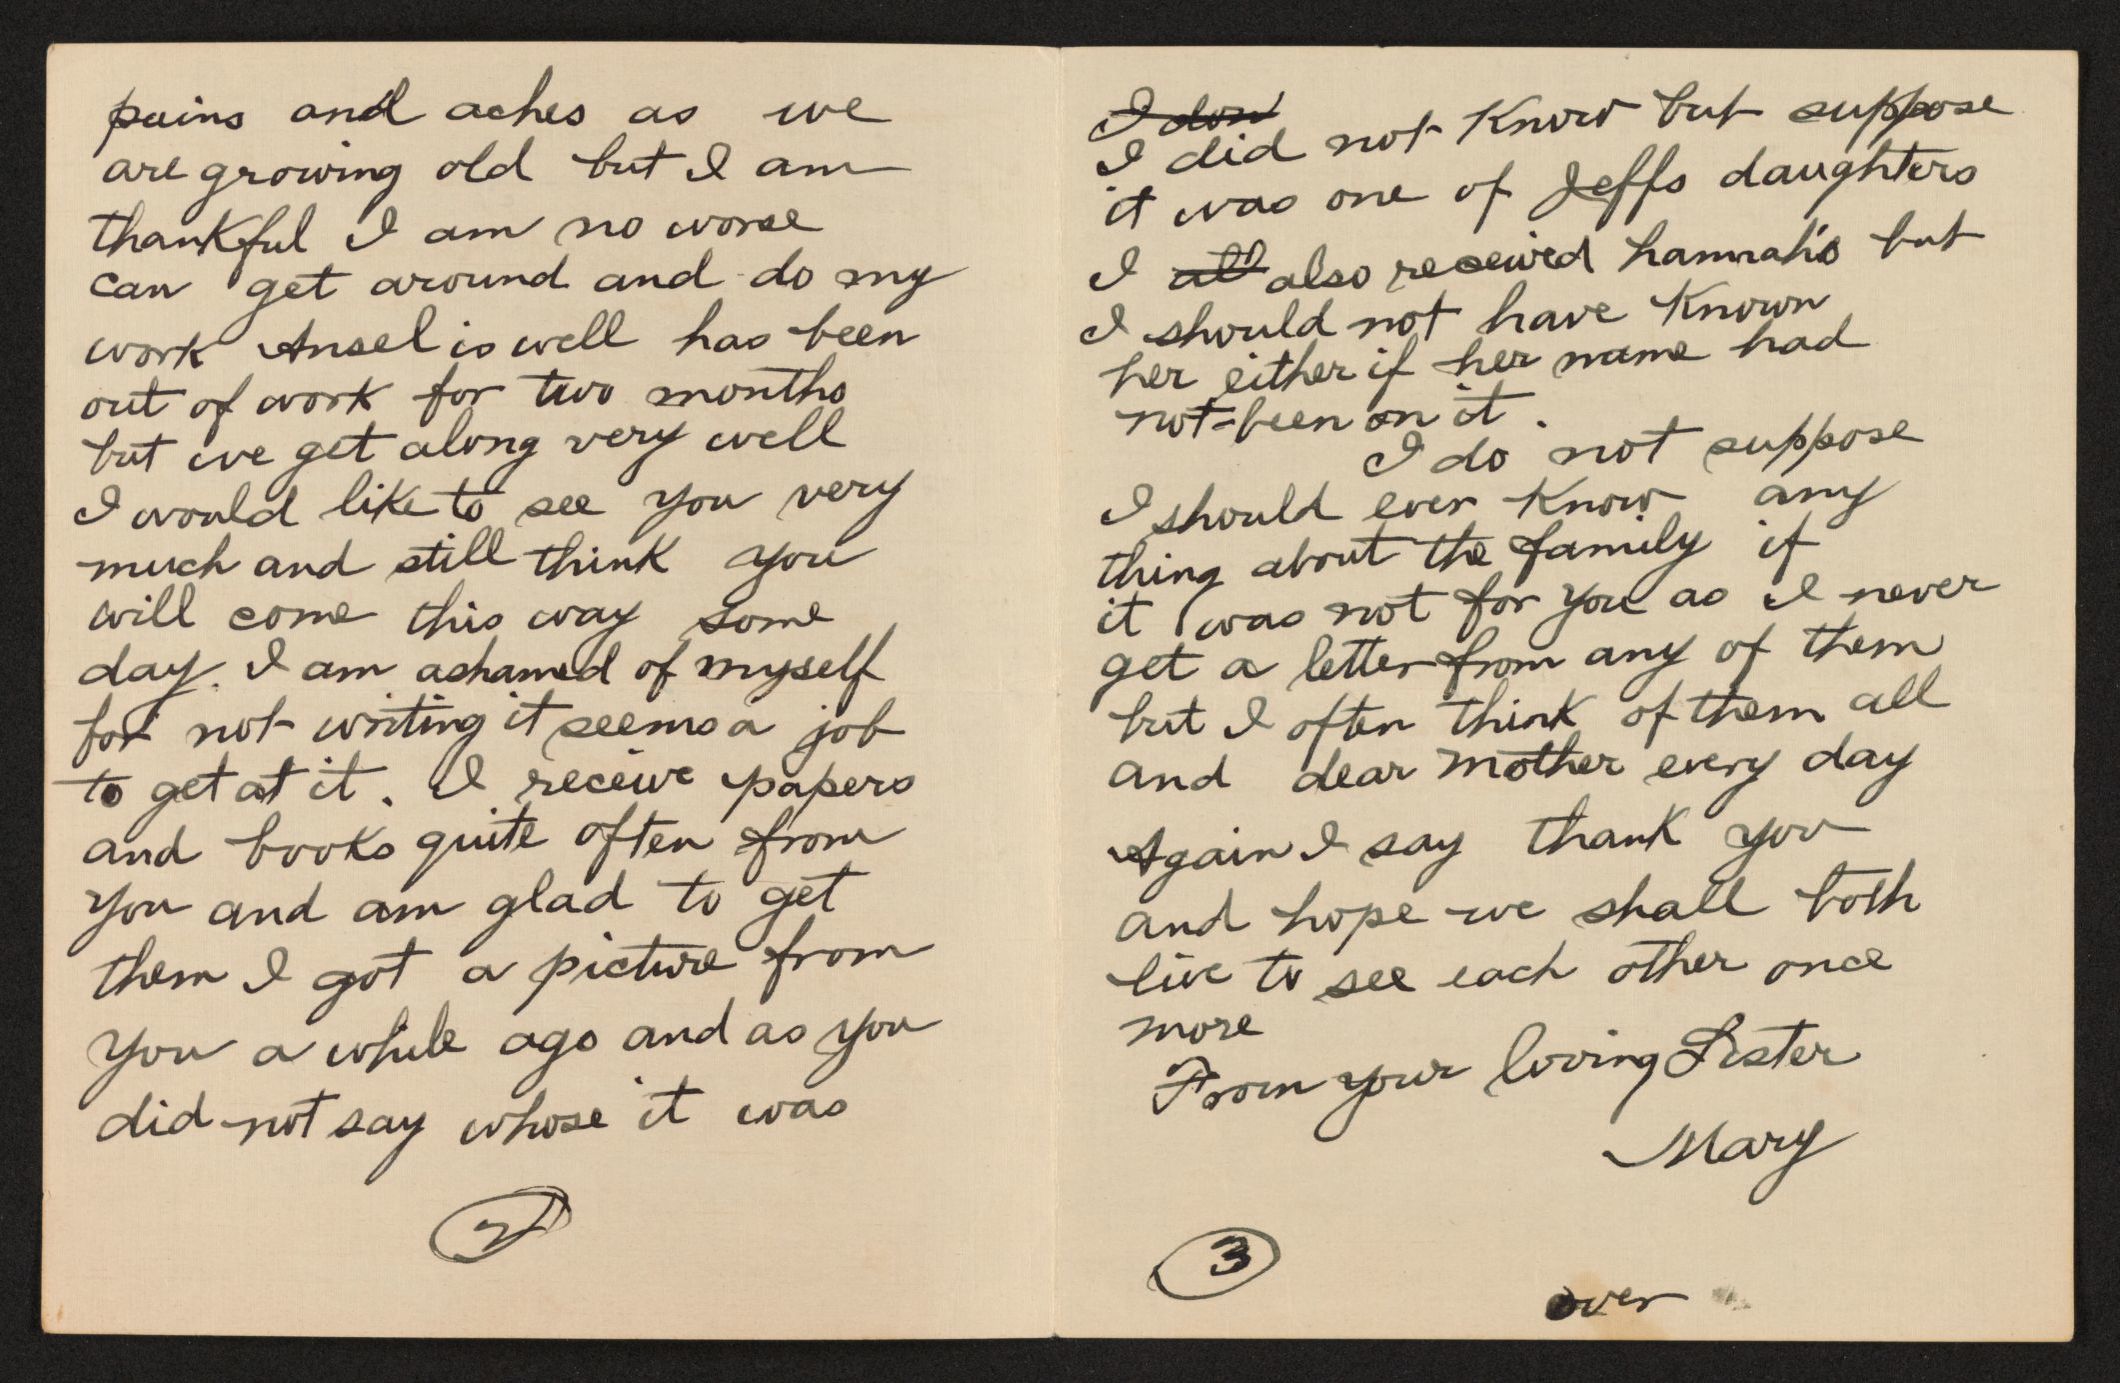 pains and aches as we
are growing old but I am
thankful I am no worse
can get around and do my
work Ansel is well has been
out of work for two months
but we get along very well
I would like to see you very
much and still think you
will come this way some
day. I am ashamed of myself
for not writing it seems a job
to get at it. I receive papers
and books quite often from
you and am glad to get
them I got a picture from
you a while ago and as you
did not say whose it was
2
I don
I did not Know but suppose
it was one of Jeffs daughters
I all also received hannah's but
I should not have Known
her either if her name had
not-been on it.
I do not suppose
I should ever Know any
thing about the family if
it was not for you as I never
get a letter from any of them
but I often think of them all
and dear mother every day
Again I say thank you
and hope we shall both
live to see each other once
more
From your loving Sister
Mary
3
over